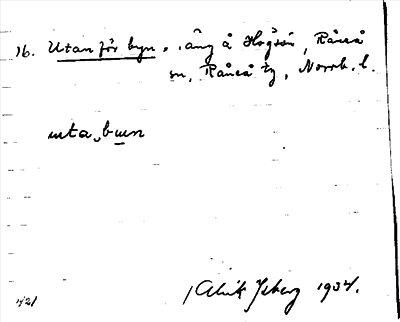 16. Utanför byn. äng å Högsön, Råneå
sn, Råneå tg, Norrb. l.
uta, buɯn
Alrik Isberg 1934.